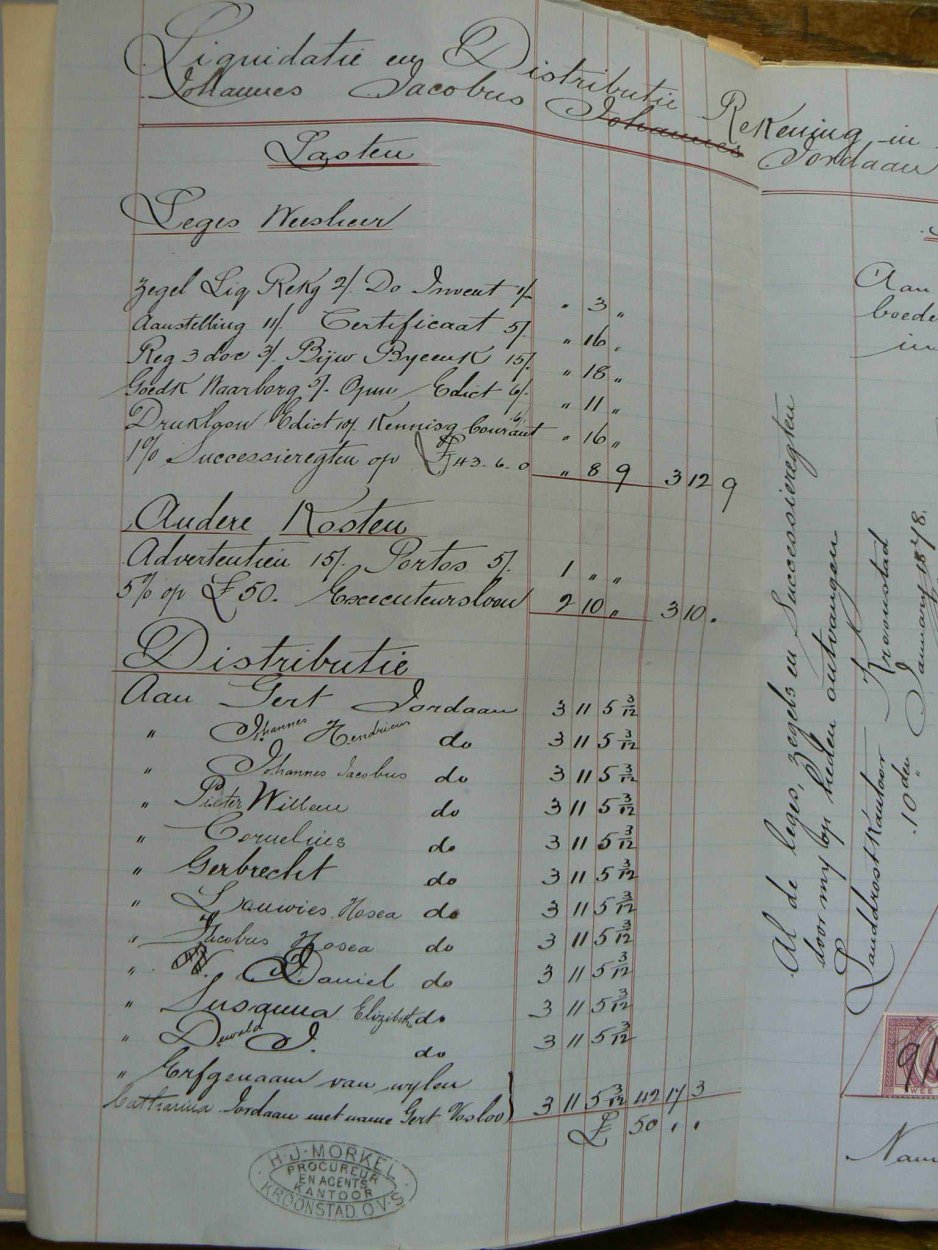 Liquidatie en Distributie Rekening in
Johannes Jacobus Johannes Jordaan
Lasten
Leges Weesheer
Zegel Liq Rekg 2/ Do Invent 1/- " 3 "
Aanstelling 11/. Certificaat 5/. " 16 "
Reg 3 doc 3/. Bijw Byeenk 15/. " 18 "
Goedk Waarborg 5/. Opm Edict 6/. " 11 "
Drukloon Edict 10/ Kennisg Courant 6/. " 16 "
1% Successieregten op £43.6.0 " 8 9 3 12 9
Andere Kosten
Advertentien 15/. Portos 5/. 1 " "
5% op £50. Executeursloon 2 10 " 3 10 .
Distributie
Aan Gert Jordaan 3 11 5 3/12
" Johannes Hendricus do 3 11 5 3/12
" Johannes Jacobus do 3 11 5 3/12
" Pieter Willem do 3 11 5 3/12
" Cornelius do 3 11 5 3/12
" Gerbrecht do 3 11 5 3/12
" Louwies Hosea do 3 11 5 3/12
" Jacobus Hosea do 3 11 5 3/12
" Daniel do 3 11 5 3/12
" Susanna Elizibeth do 3 11 5 3/12
" Dewald J. do 3 11 5 3/12
" Erfgenaam van wylen
Catharina Jordaan met name Gert Vosloo) 3 11 5 3/12 42 17 3
£ 50 . .
H. J. MORKEL
PROCUREUR
EN AGENTS
KANTOOR
KROONSTAD. O.V.S
Aan
boede
in
Al de leges, zegels en Successieregten
door my op heden ontvangen
Landdrostkantoor Kroonstad
10 den January 1898.
91
Nam